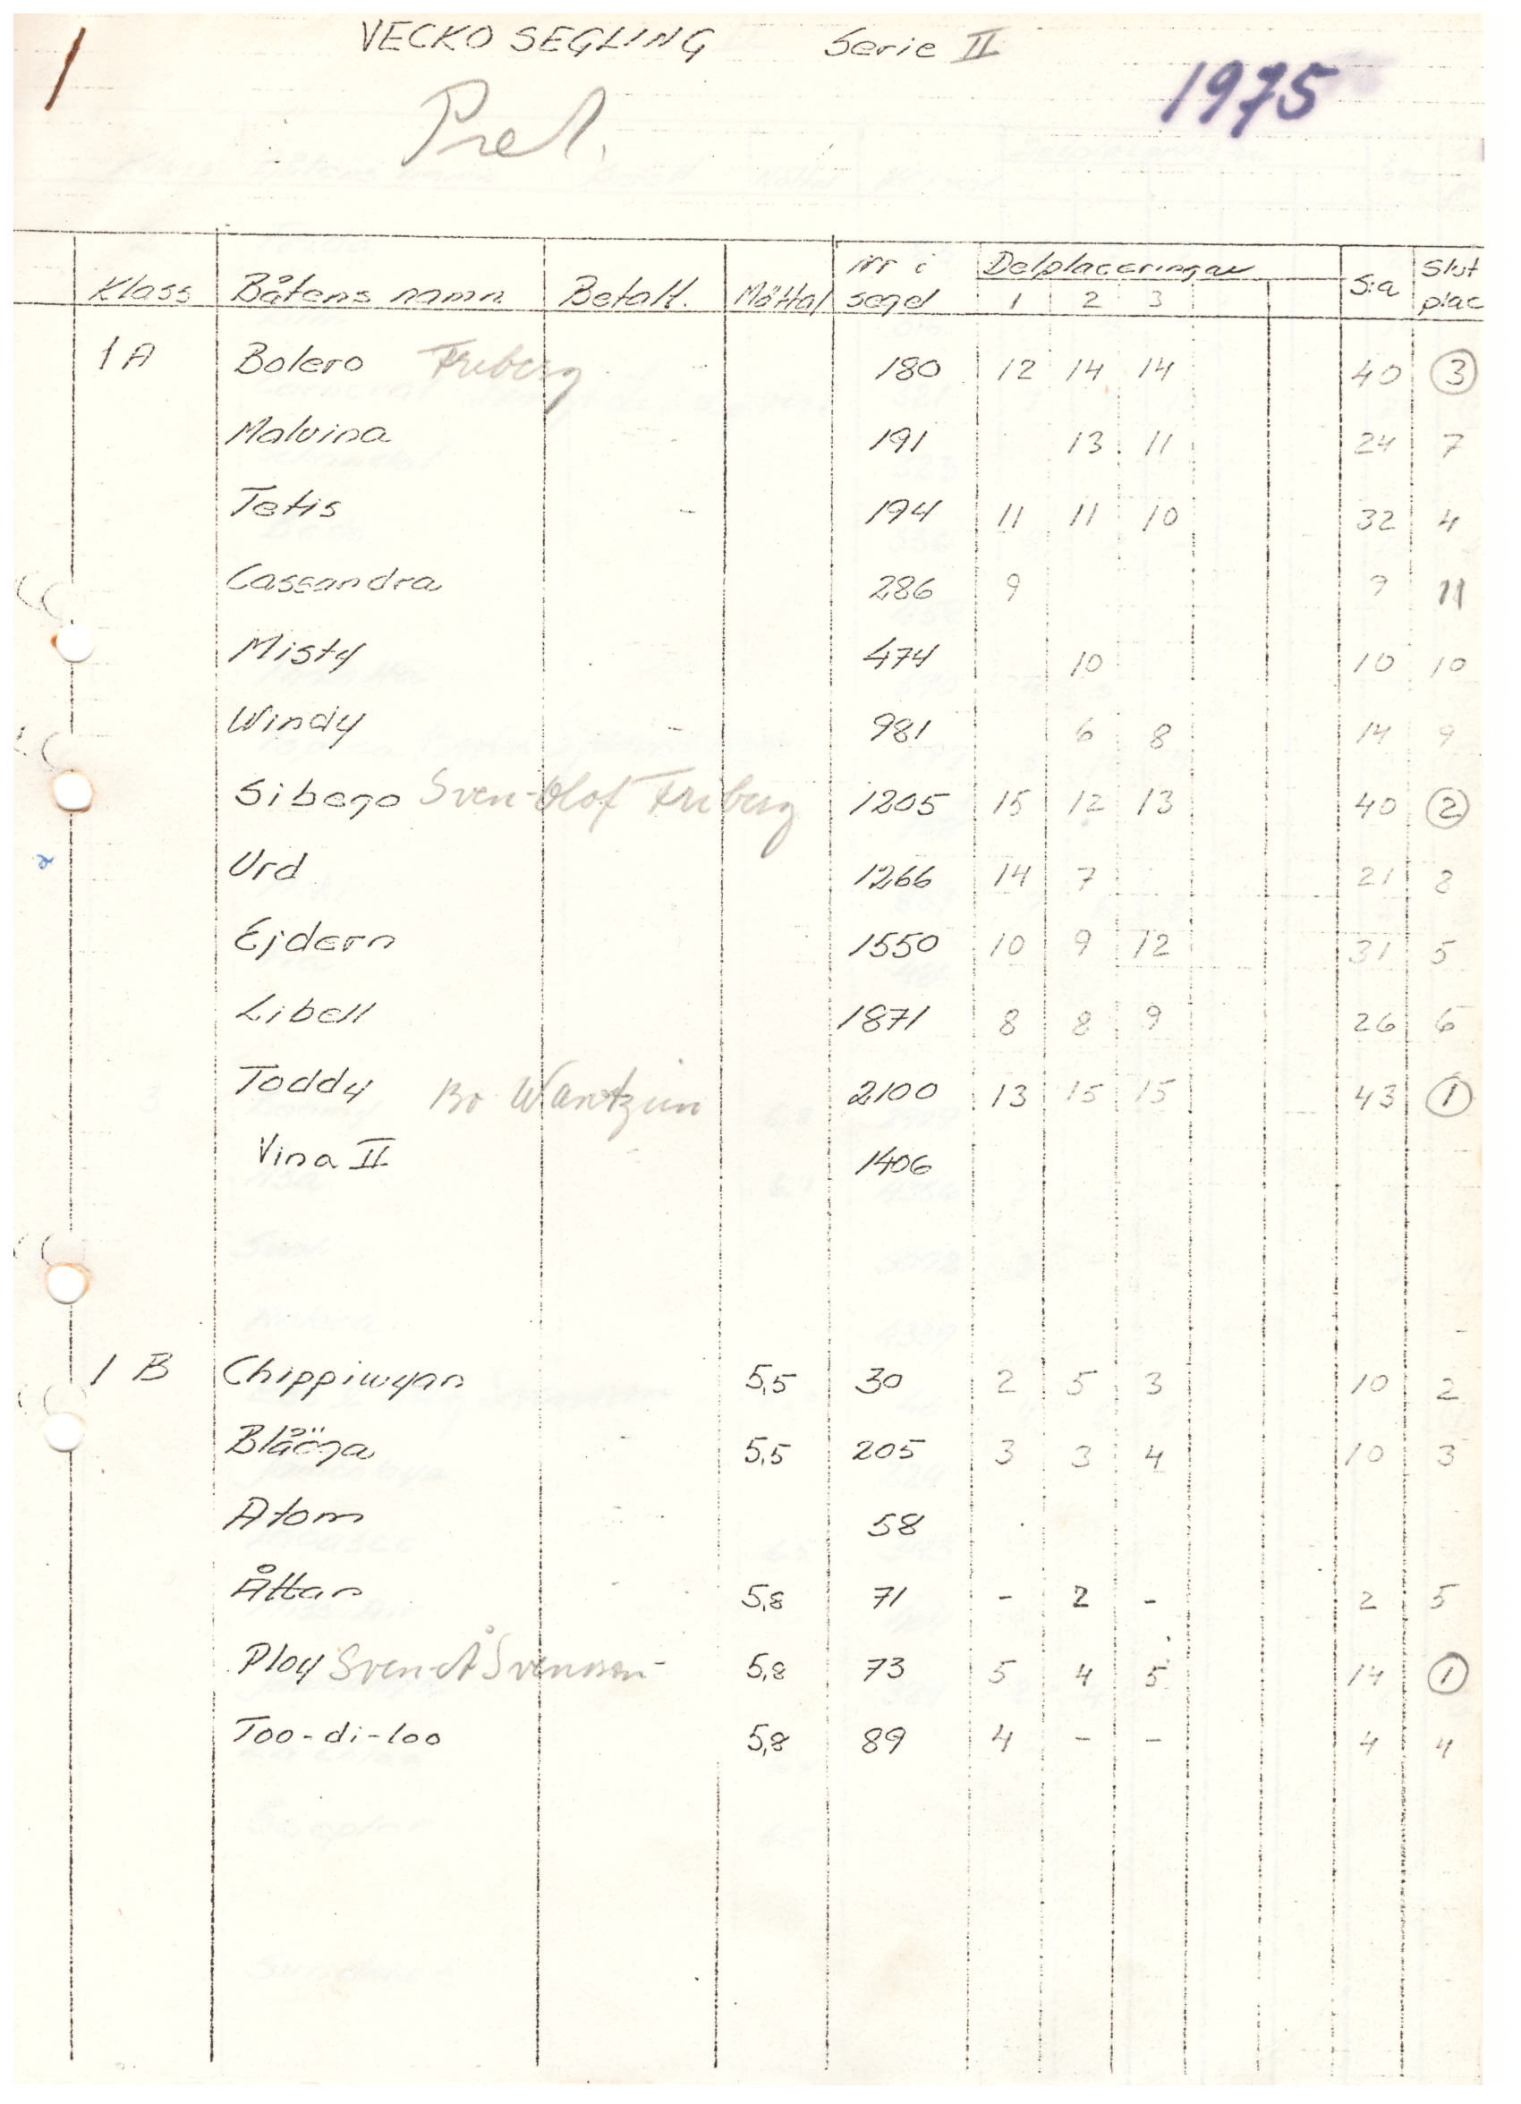 VECKO SEGLING Serie II
1975
Prel.
Klass Båtens namn Betalt. Mättal Nr i segel Delplaceringar 1 2 3 S:a Slut plac
1A Bolero Friberg 180 12 14 14 40 3
Malvina 191 13 11 24 7
Tetis 194 11 11 10 32 4
Cassandra 286 9 9 11
Misty 474 10 10 10
Windy 981 6 8 14 9
Sibego Sven-Olof Friberg 1205 15 12 13 40 2
Urd 1266 14 7 21 8
Ejdern 1550 10 9 12 31 5
Libell 1871 8 8 9 26 6
Toddy Bo Wantzin 2100 13 15 15 43 1
Vina II 1406
1 B Chippiwyan 5,5 30 2 5 3 10 2
Blåöga 5,5 205 3 3 4 10 3
Atom 58
Åttan 5,8 71 - 2 - 2 5
Ploy Sven-Å Svensson 5,8 73 5 4 5 14 1
Too-di-loo 5,8 89 4 - - 4 4